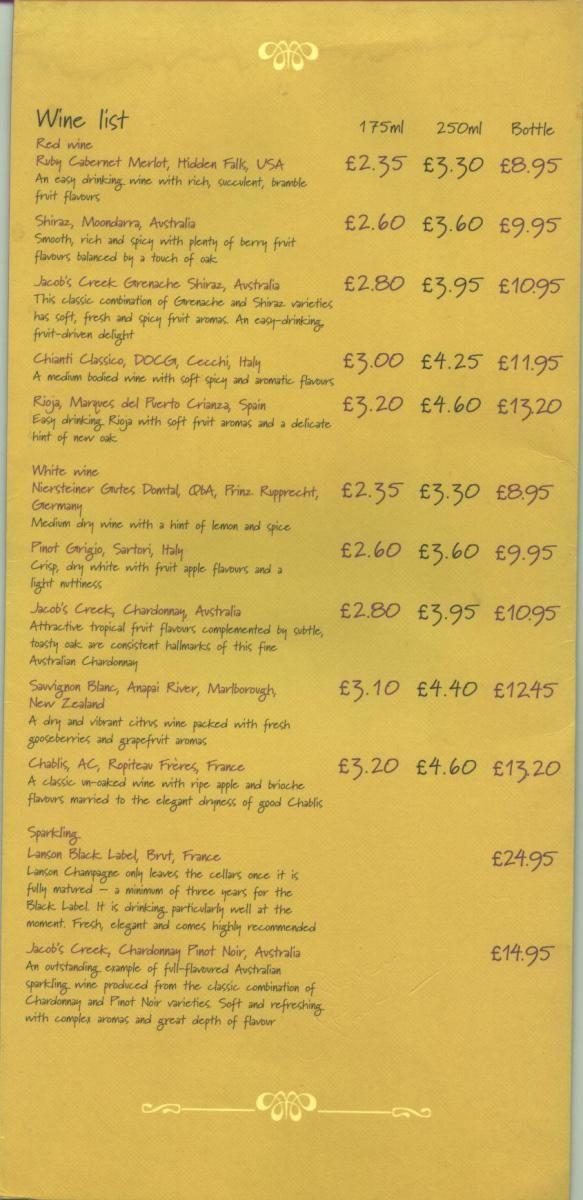 Wine list 175ml 250ml Bottle
Red wine
Ruby Cabernet Merlot, Hidden Falls, USA £2.35 £3.30 £8.95
An easy drinking wine with rich, succulent, bramble
fruit flavours
Shiraz, Moondarra, Australia £2.60 £3.60 £9.95
Smooth, rich and spicy with plenty of berry fruit
flavours balanced by a touch of oak
Jacob's Creek Grenache Shiraz, Australia £2.80 £3.95 £10.95
This classic combination of Grenache and Shiraz varieties
has soft, fresh and spicy fruit aromas. An easy-drinking,
fruit-driven delight
Chianti Classico, DOCG, Cecchi, Italy £3.00 £4.25 £11.95
A medium bodied wine with soft spicy and aromatic flavours
Rioja, Marques del Puerto Crianza, Spain £3.20 £4.60 £13.20
Easy drinking Rioja with soft fruit aromas and a delicate
hint of new oak
White wine
Niersteiner Gutes Domtal, QbA, Prinz Rupprecht, £2.35 £3.30 £8.95
Germany
Medium dry wine with a hint of lemon and spice
Pinot Grigio, Sartori, Italy £2.60 £3.60 £9.95
Crisp, dry white with fruit apple flavours and a
light nuttiness
Jacob's Creek, Chardonnay, Australia £2.80 £3.95 £10.95
Attractive tropical fruit flavours complemented by subtle,
toasty oak are consistent hallmarks of this fine
Australian Chardonnay
Sauvignon Blanc, Anapai River, Marlborough, £3.10 £4.40 £12.45
New Zealand
A dry and vibrant citrus wine packed with fresh
gooseberries and grapefruit aromas
Chablis, AC, Ropiteau Frères, France £3.20 £4.60 £13.20
A classic un-oaked wine with ripe apple and brioche
flavours married to the elegant dryness of good Chablis
Sparkling
Lanson Black Label, Brut, France £24.95
Lanson Champagne only leaves the cellars once it is
fully matured – a minimum of three years for the
Black Label. It is drinking particularly well at the
moment. Fresh, elegant and comes highly recommended
Jacob's Creek, Chardonnay Pinot Noir, Australia £14.95
An outstanding example of full-flavoured Australian
sparkling wine produced from the classic combination of
Chardonnay and Pinot Noir varieties. Soft and refreshing
with complex aromas and great depth of flavour